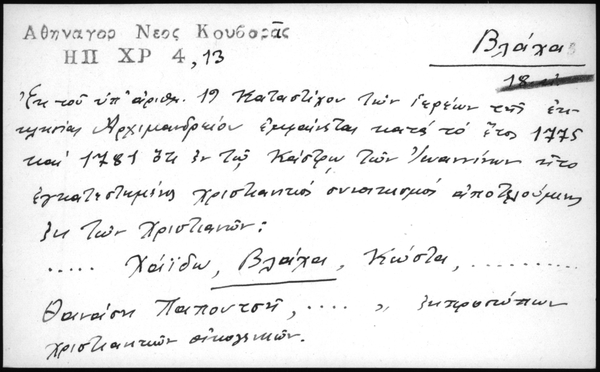 Αθηναγορ Νεος Κουβαρᾶς
ΗΠ ΧΡ 4, 13
Βλάχα
18
Ἐκ τοῦ ὑπ' ἀριθμ. 19 Καταστίχου τῶν ἱερείων τῆς ἐκ-
κλησίας Ἀρχιμανδρείου ἐμφαίνεται κατά τό ἔτος 1775
καί 1781 ὅτι ἐν τῷ Κάστρῳ τῶν Ἰωαννίνων ἦτο
ἐγκατεστημένος χριστιανικός συνοικισμός ἀποτελούμενος
ἐκ τῶν χριστιανῶν:
..... Χάϊδω, Βλάχα, Κώστα, ..........
Θανάση Παπουτσῆ, ..... ἐκπροσώπων
χριστιανικῶν οἰκογενειῶν.